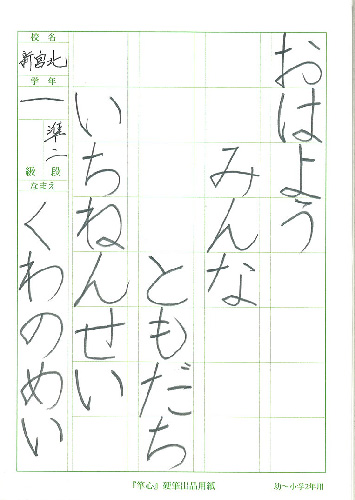 おはよう
みんな
ともだち
いちねんせい
校名
新宮北
学年
一
準二
級段
なまえ
くわのめい
『筆心』硬筆出品用紙
幼〜小学2年用